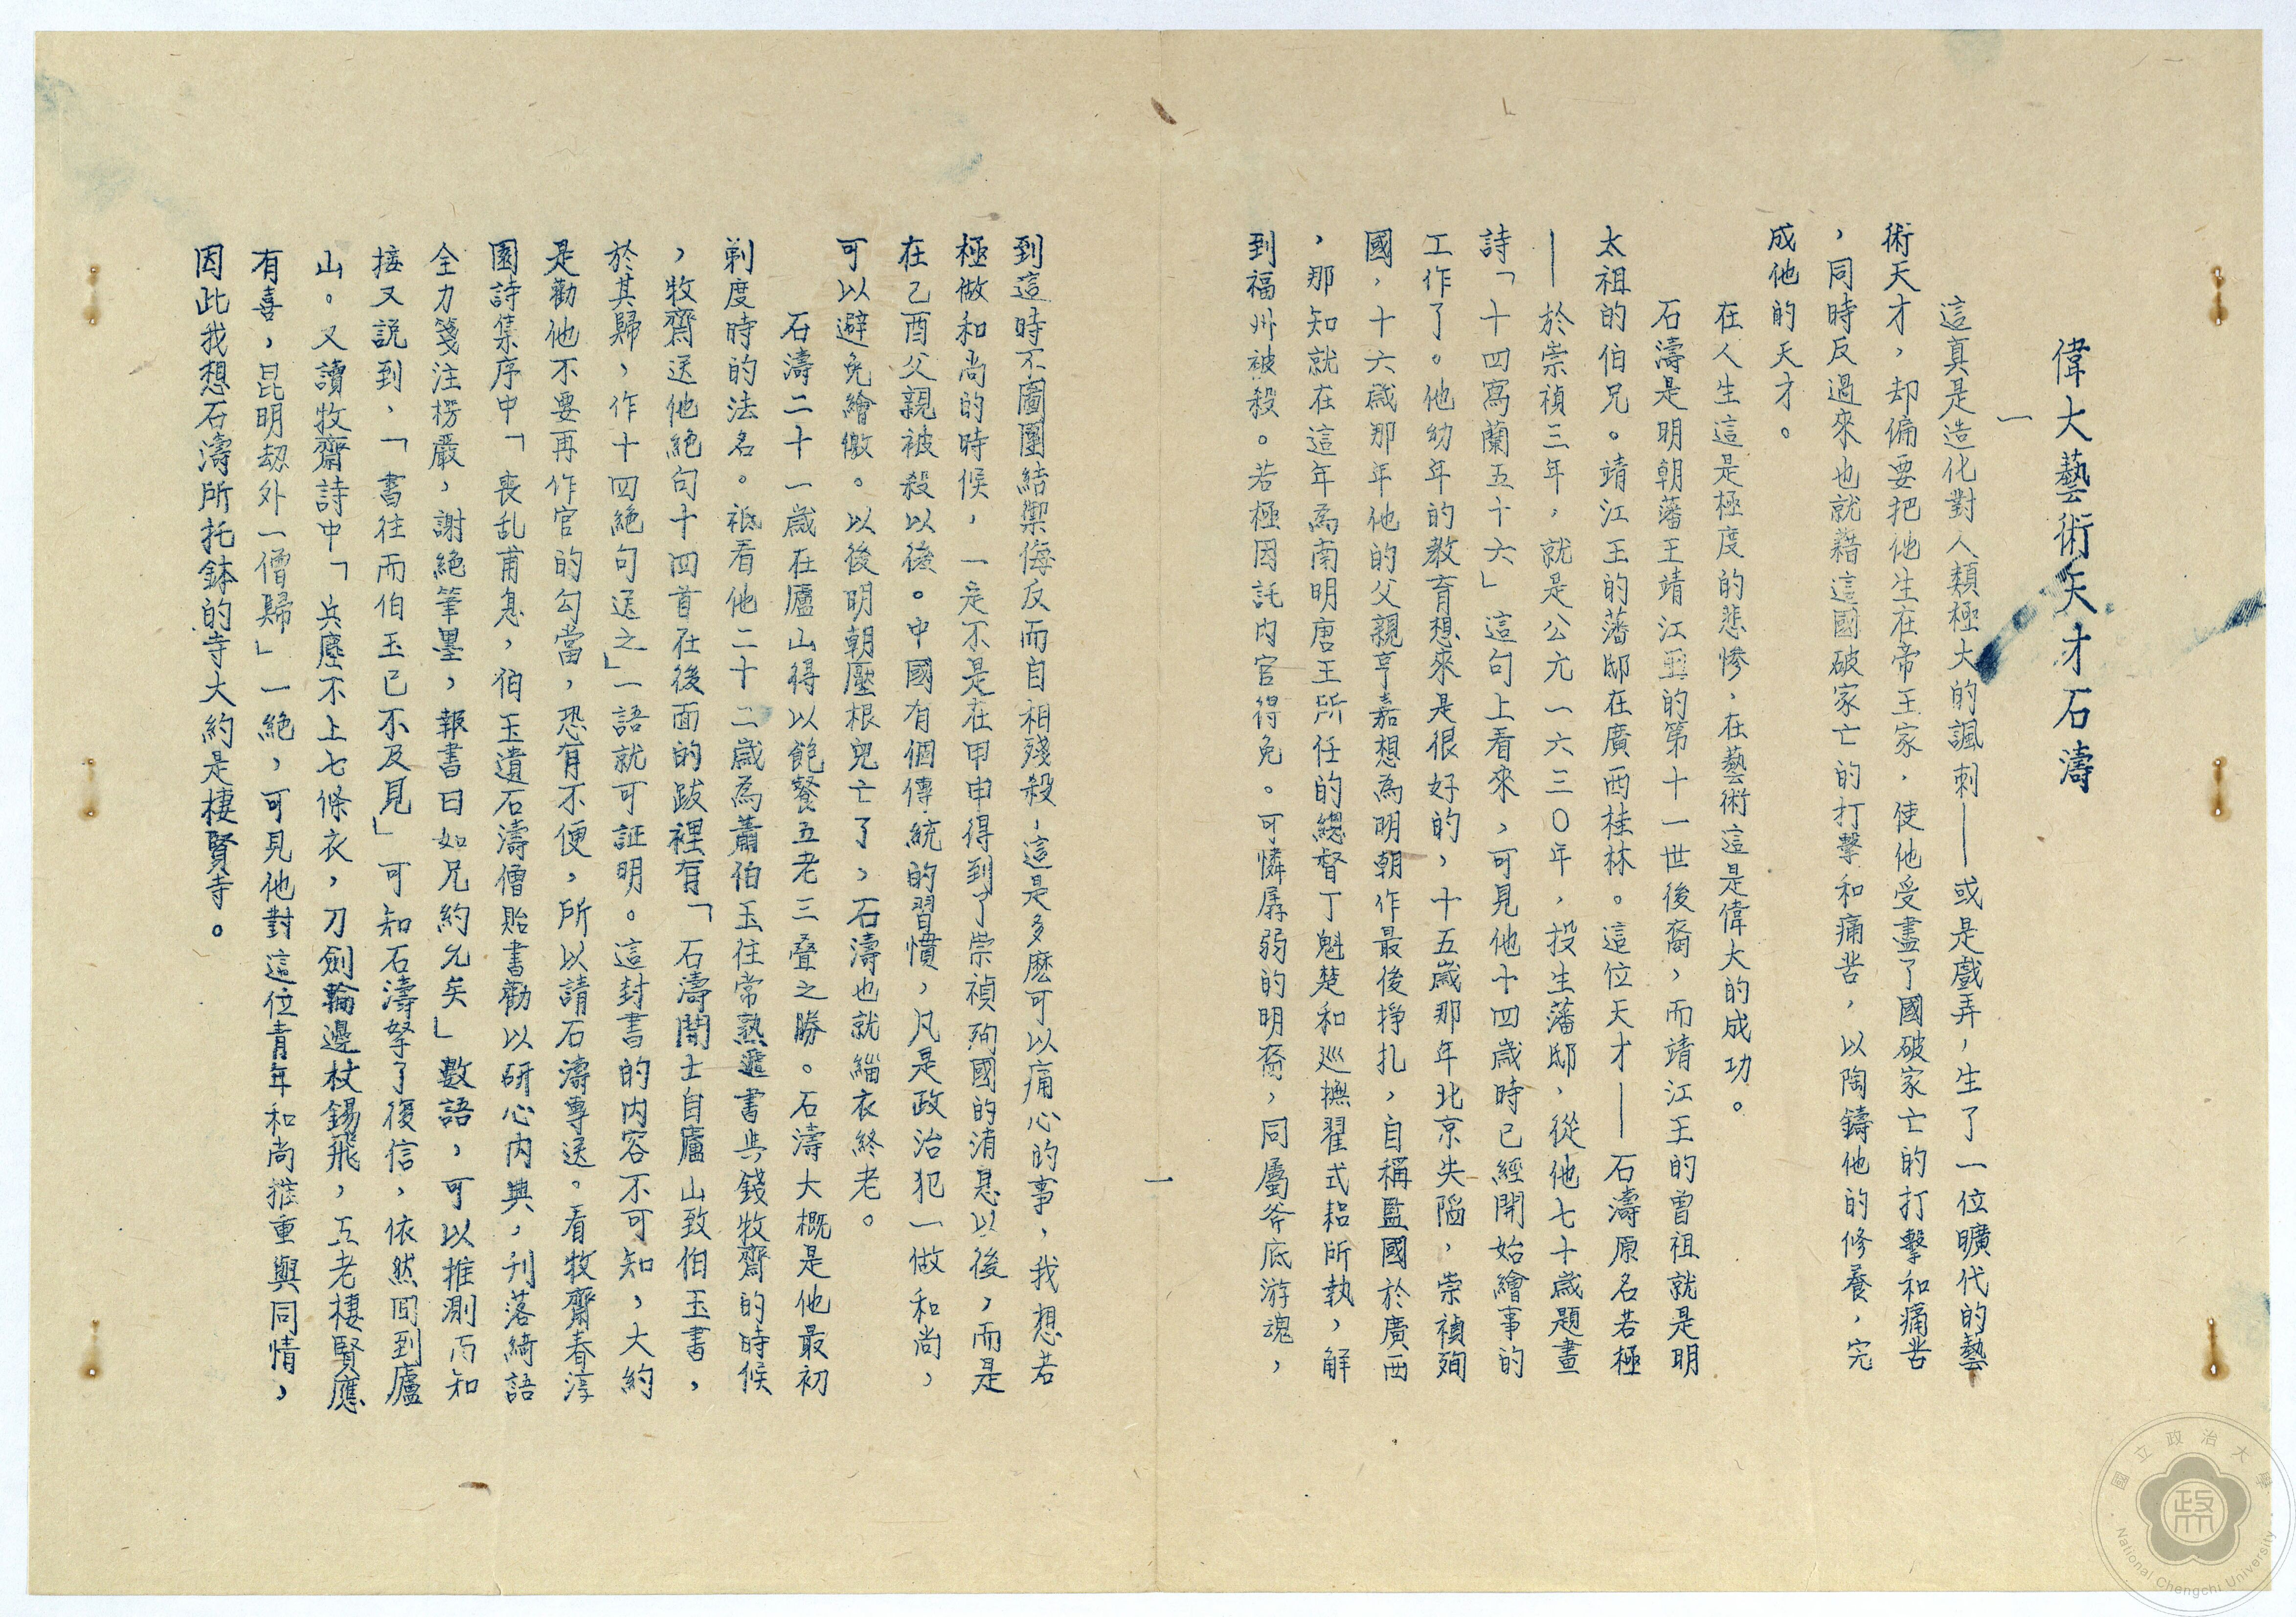 偉大藝術天才石濤
一
這真是造化對人類極大的諷刺——或是戲弄，生了一位曠代的藝
術天才，却偏要把他生在帝王家，使他受盡了國破家亡的打擊和痛苦
，同時反過來也就藉這國破家亡的打擊和痛苦，以陶鑄他的修養，完
成他的天才。
在人生這是極度的悲慘，在藝術這是偉大的成功。
石濤是明朝藩王靖江王的第十一世後裔，而靖江王的曾祖就是明
太祖的伯兄。靖江王的藩邸在廣西桂林。這位天才——石濤原名若極
——於崇禎三年，就是公元一六三〇年，投生藩邸，從他七十歲題畫
詩「十四寫蘭五十六」這句上看來，可見他十四歲時已經開始繪事的
工作了。他幼年的教育想來是很好的，十五歲那年北京失陷，崇禎殉
國，十六歲那年他的父親亨嘉想為明朝作最後掙扎，自稱監國於廣西
，那知就在這年為南明唐王所任的總督丁魁楚和巡撫瞿式耜所執，解
到福州被殺。若極因託內官得免。可憐孱弱的明裔，同屬斧底游魂，
一
到這時不圖團結禦侮反而自相殘殺，這是多麽可以痛心的事，我想若
極做和尚的時候，一定不是在甲申得到了崇禎殉國的消息以後，而是
在乙酉父親被殺以後。中國有個傳統的習慣，凡是政治犯一做和尚，
可以避免繒繳。以後明朝壓根兒亡了，石濤也就緇衣終老。
石濤二十一歲在廬山得以飽餐五老三叠之勝。石濤大概是他最初
剃度時的法名。祇看他二十二歲為蕭伯玉往常熟遞書與錢牧齋的時候
，牧齋送他絕句十四首在後面的跋裡有「石濤開士自廬山致伯玉書，
於其歸，作十四絕句送之」一語就可証明。這封書的內容不可知，大約
是勸他不要再作官的勾當，恐有不便，所以請石濤專送。看牧齋春淳
園詩集序中「喪乱甫息，伯玉遺石濤僧貽書勸以研心內典，刊落綺語
全力箋注楞嚴，謝絕筆墨，報書曰如兄約允矣」數語，可以推測而知
接又説到，「書往而伯玉已不及見」可知石濤拏了復信，依然回到廬
山。又讀牧齋詩中「兵塵不上七條衣，刀劍輪邊杖錫飛，五老棲賢應
有喜，昆明劫外一僧歸」一絕，可見他對這位青年和尚推重與同情，
因此我想石濤所托鉢的寺大約是棲賢寺。
國立政治大學
National Chengchi University